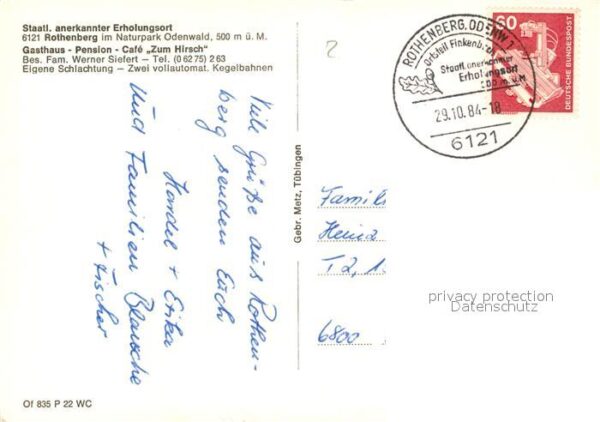 Staatl. anerkannter Erholungsort
6121 Rothenberg im Naturpark Odenwald, 500 m ü. M.
Gasthaus - Pension - Café „Zum Hirsch"
Bes. Fam. Werner Siefert – Tel. (0 62 75) 2 63
Eigene Schlachtung – Zwei vollautomat. Kegelbahnen
2
ROTHENBERG, ODENW 1
Ortsteil Finkenbach
Staatl. anerkannter
Erholungsort
500 m ü. M
29.10.84-18
6121
60
DEUTSCHE BUNDESPOST
Viele Grüße aus Rothen-
berg senden Euch
Handel + Erika
und Familien Blasche
+ Fischer
Gebr. Metz, Tübingen
Famili
Heinz
T 2, 1
6800
privacy protection
Datenschutz
Of 835 P 22 WC